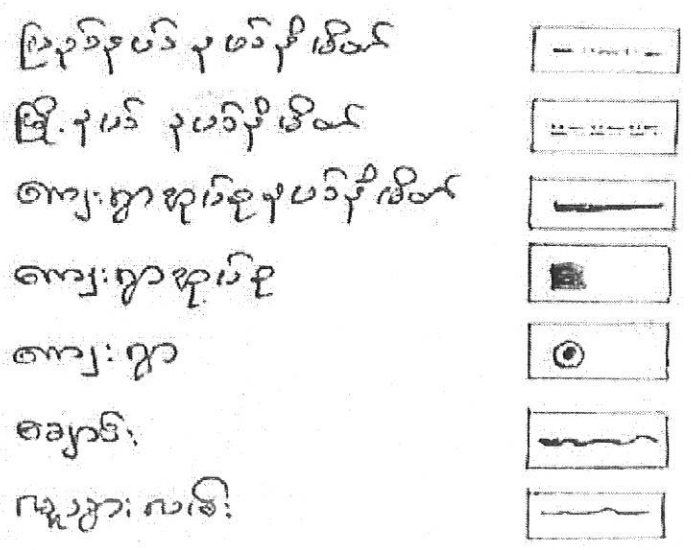 ပြည်နယ် နယ်နိမိတ်
မြို့နယ် နယ်နိမိတ်
ကျေးရွာအုပ်စုနယ်နိမိတ်
ကျေးရွာအုပ်စု
ကျေးရွာ
ချောင်း
လူသွားလမ်း